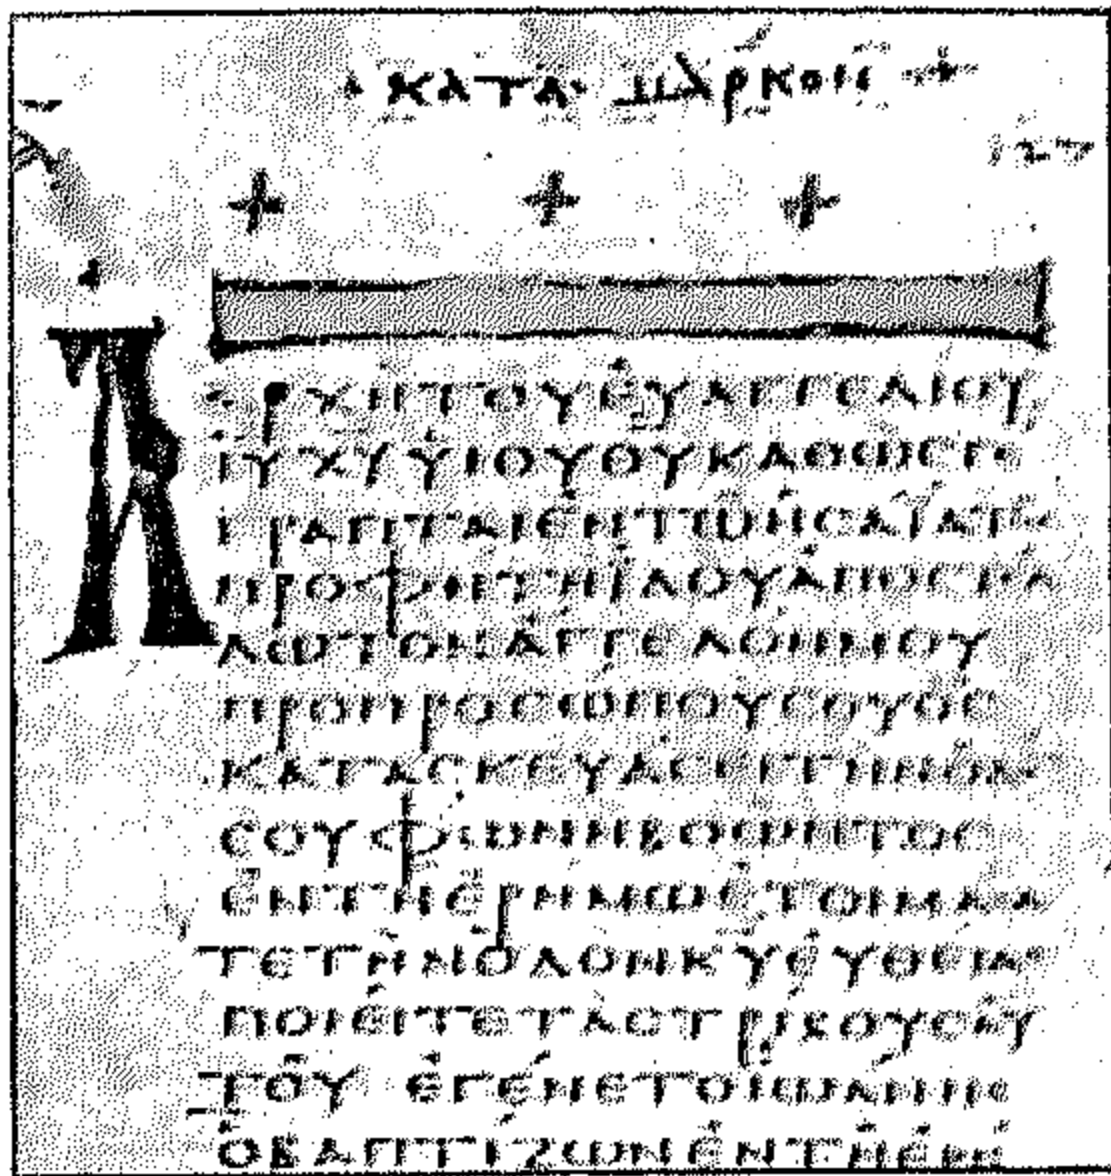 ΚΑΤΑ ΜΑΡΚΟΝ
ΑΡΧΗΤΟΥΕΥΑΓΓΕΛΙΟΥ
ΙΥΧΥΥΙΟΥΘΥΚΑΘΩϹΓΕ
ΓΡΑΠΤΑΙΕΝΤΩΗϹΑΙΑΤΩ
ΠΡΟΦΗΤΗΙΔΟΥΑΠΟϹΤΕΛ
ΛΩΤΟΝΑΓΓΕΛΟΝΜΟΥ
ΠΡΟΠΡΟϹΩΠΟΥϹΟΥΟϹ
ΚΑΤΑϹΚΕΥΑϹΕΙΤΗΝΟΔΟ
ϹΟΥΦΩΝΗΒΟΩΝΤΟϹ
ΕΝΤΗΕΡΗΜΩΕΤΟΙΜΑϹΑ
ΤΕΤΗΝΟΔΟΝΚΥΕΥΘΕΙΑϹ
ΠΟΙΕΙΤΕΤΑϹΤΡΙΒΟΥϹΑΥ
ΤΟΥ ΕΓΕΝΕΤΟΙΩΑΝΝΗϹ
ΟΒΑΠΤΙΖΩΝΕΝΤΗΕΡΗ